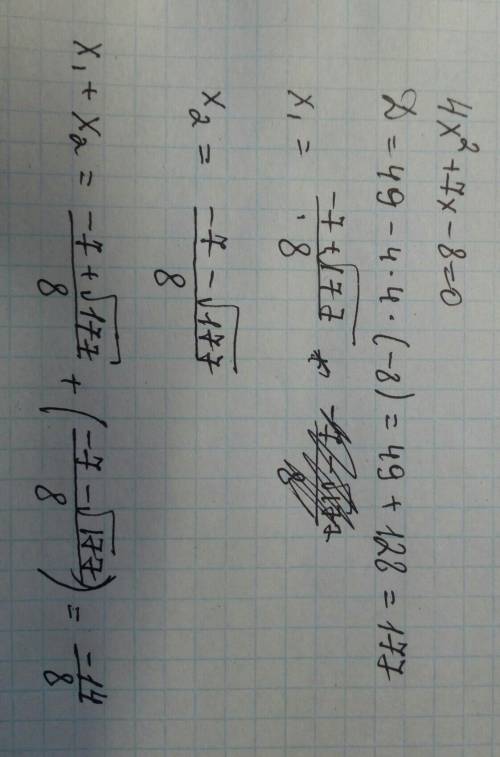 4x²+7x-8=0
D=49-4·4·(-8)=49+128=177
x₁ = (-7+√177)/8
x₂ = (-7-√177)/8
x₁+x₂ = (-7+√177)/8 + ((-7-√177)/8) = -14/8